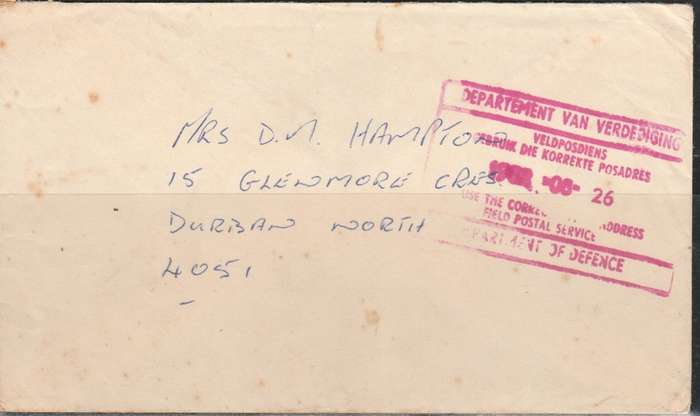 MRS D.M. HAMPTON
15 GLENMORE CRES
DURBAN NORTH
4051
DEPARTEMENT VAN VERDEDIGING
VELDPOSDIENS
GEBRUIK DIE KORREKTE POSADRES
-08- 26
USE THE ADDRESS
FIELD POSTAL SERVICE
DEPARTMENT OF DEFENCE